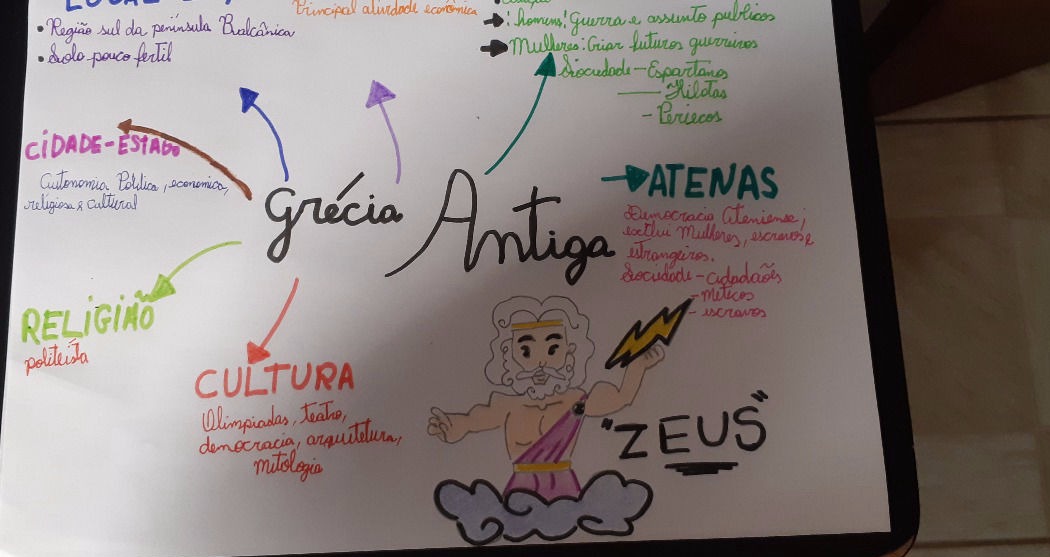 LOCAL
• Região sul da península Balcânica
• Solo pouco fertil
Principal atividade econômica
: homens: Guerra e assunto publicos
Mulheres: Criar futuros guerreiros
Sociedade - Espartanos
— Hilotas
- Periecos
CIDADE-ESTADO
Autonomia Política, economica,
religiosa e cultural
Grécia Antiga
ATENAS
Democracia Ateniense;
exclui Mulheres, escravos e
estrangeiros.
Sociedade - cidadãoẽs
- metecos
- escravos
RELIGIÃO
politeísta
CULTURA
Olimpiadas, teatro,
democracia, arquitetura,
mitologia
"ZEUS"